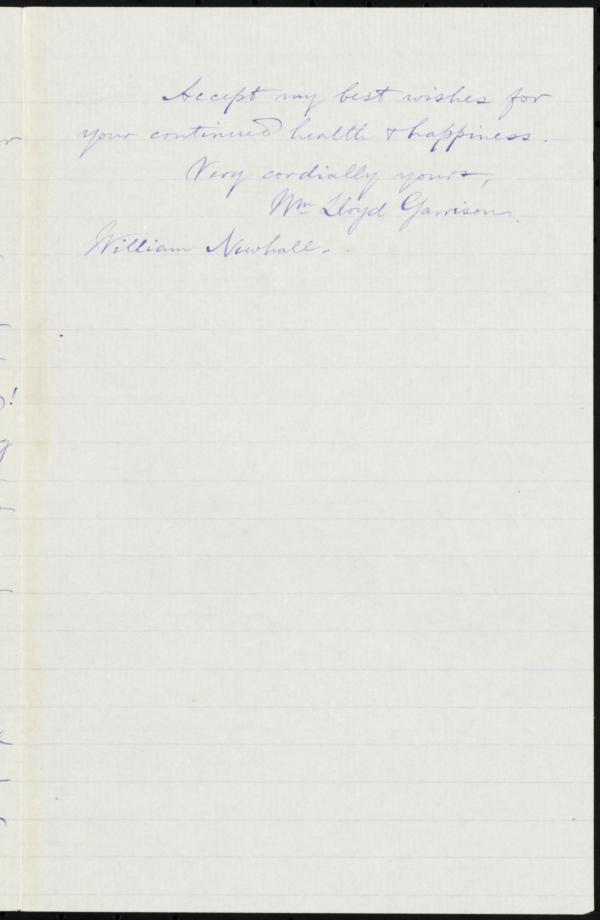 Accept my best wishes for
your continued health & happiness.
Very cordially yours,
Wm Lloyd Garrison.
William Newhall.